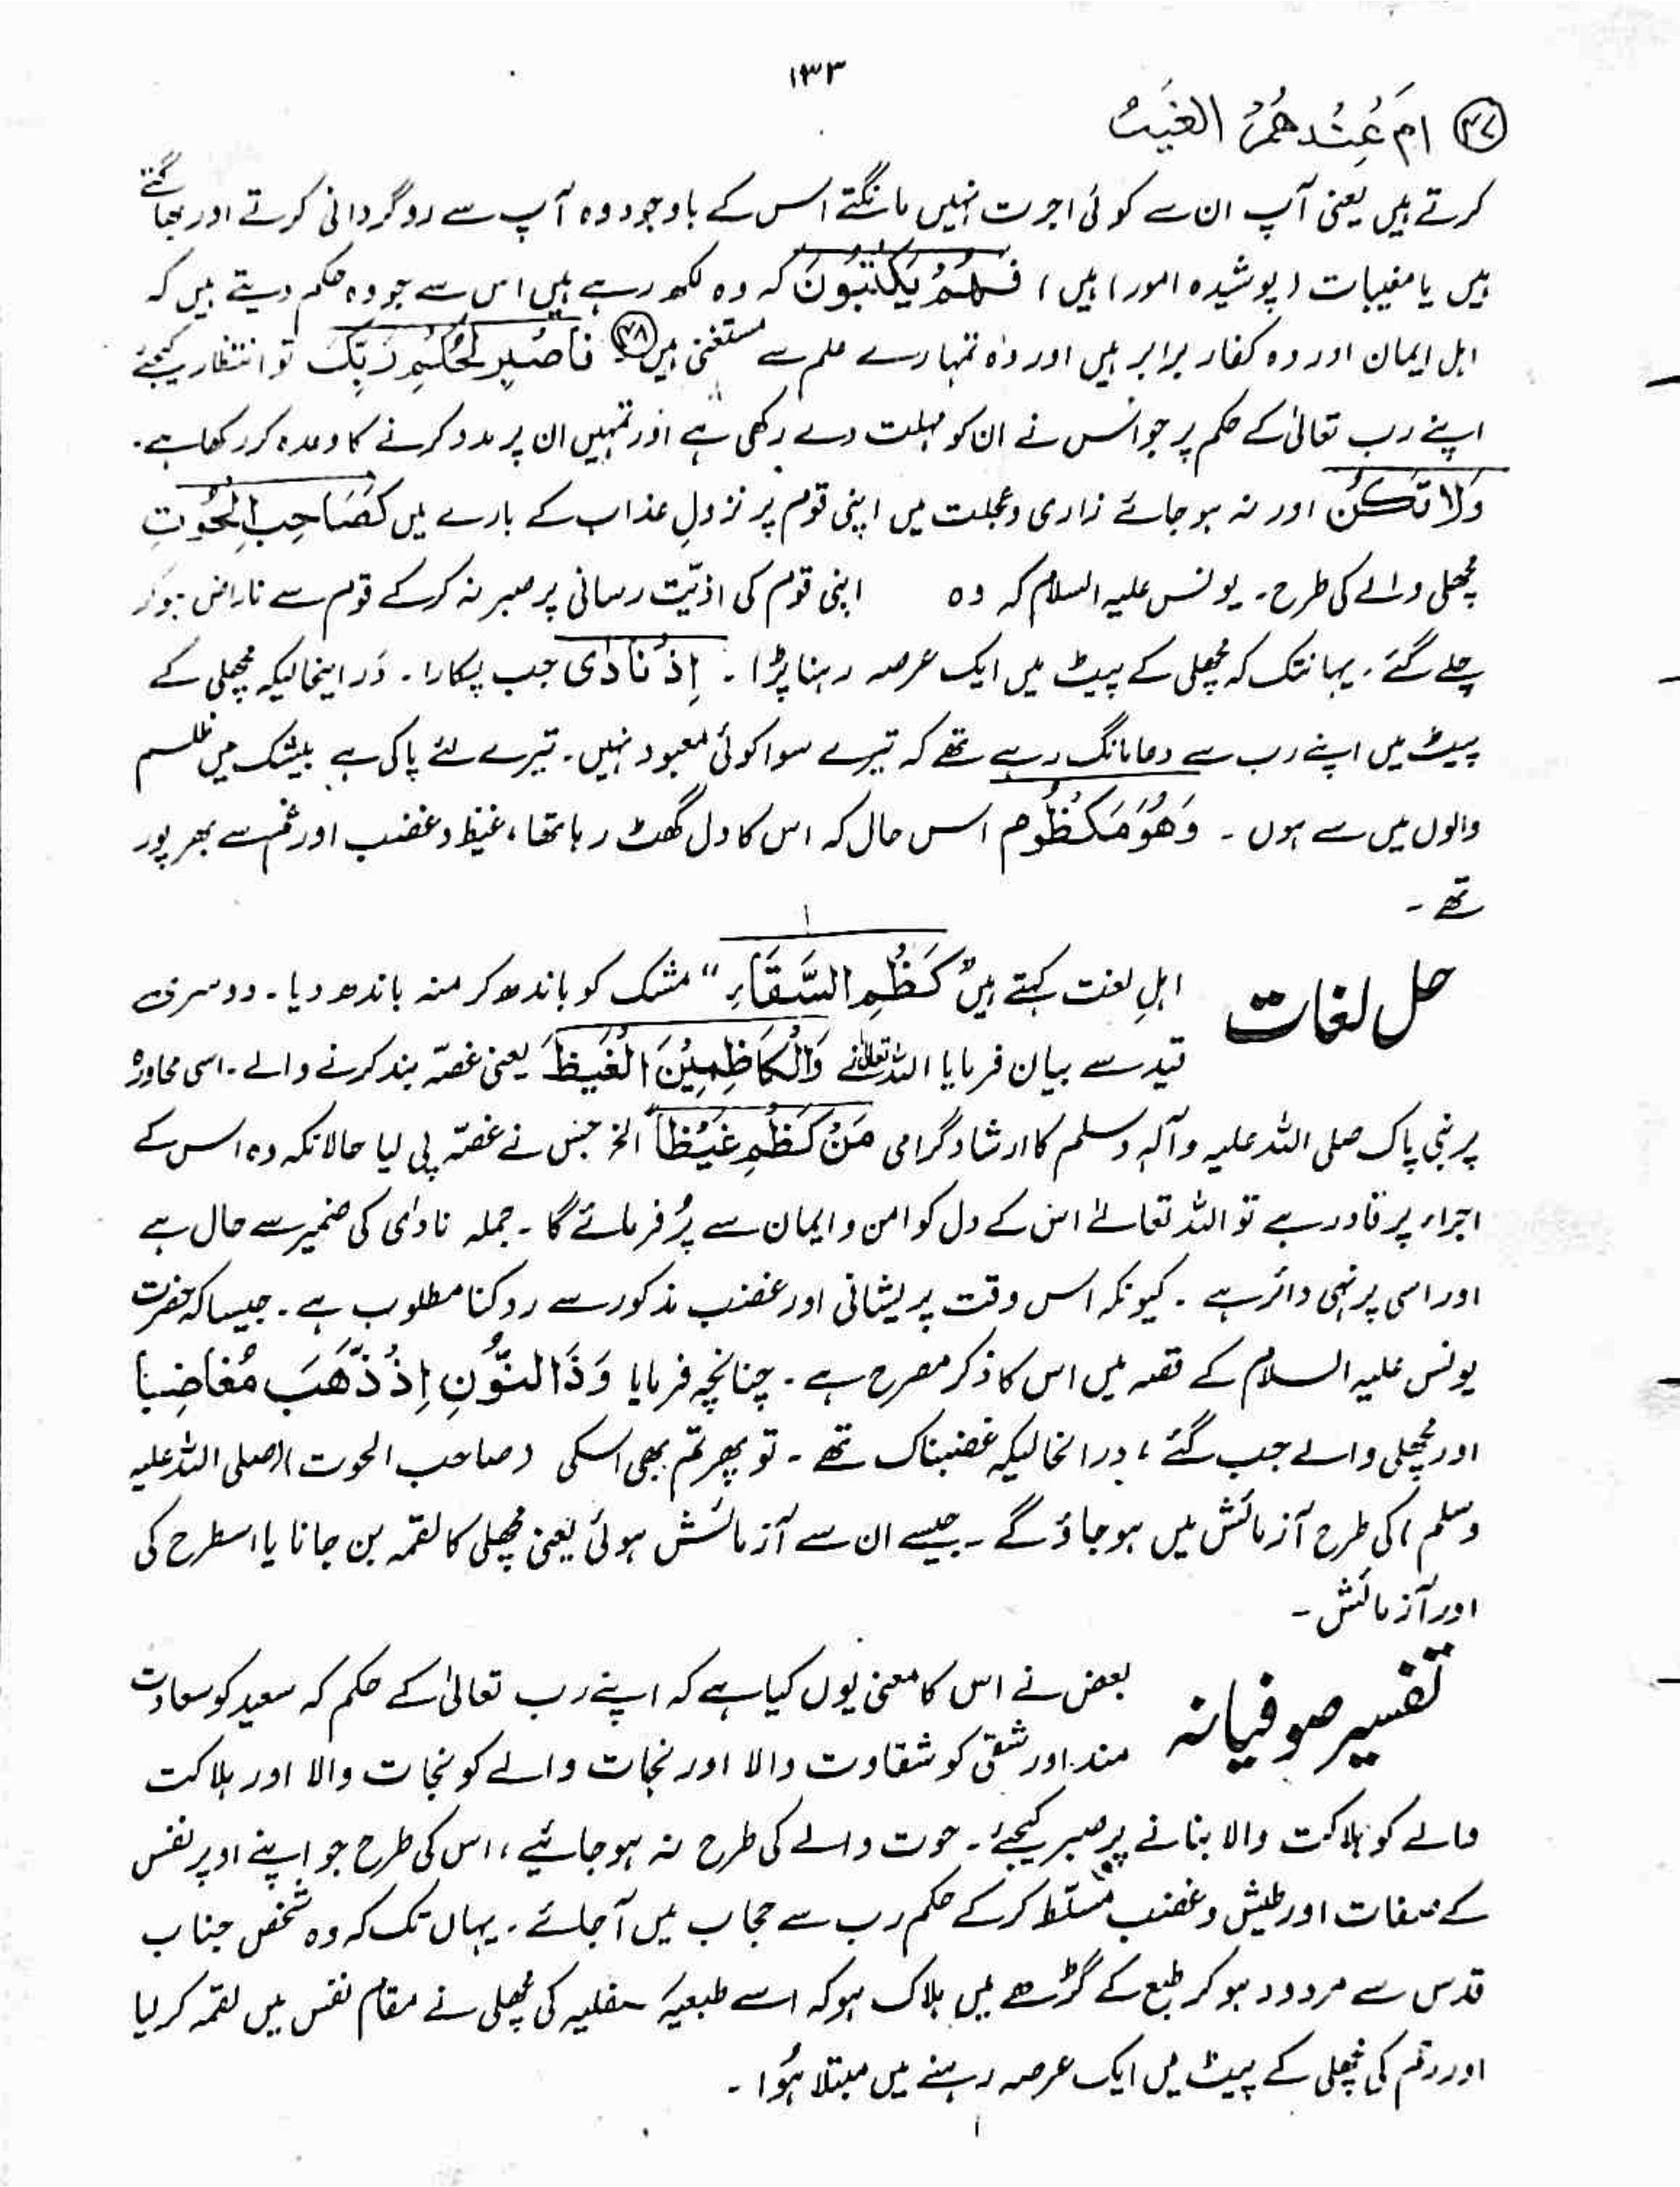 ۱۳۳
(۴۷) ام عِنْدهُمُ الغَيْبُ
کرتے ہیں یعنی آپ ان سے کوئی اجرت نہیں مانگتے اس کے باوجود وہ آپ سے روگردانی کرتے اور بھاگتے
ہیں یا مغیبات (پوشیدہ امور) ہیں ، فَهُمْ يَكْتُبُوْنَ کہ وہ لکھ رہے ہیں اس سے جو وہ حکم دیتے ہیں کہ
اہل ایمان اور وہ کفار برابر ہیں اور وہ تمہارے علم سے مستغنی ہیں (۴۸) فَاصْبِرْ لِحُكْمِ رَبِّكَ تو انتظار کیجئے
اپنے رب تعالیٰ کے حکم پر جو اس نے ان کو مہلت دے رکھی ہے اور تمہیں ان پر مدد کرنے کا وعدہ کر رکھا ہے۔
وَلَا تَكُنْ اور نہ ہو جائے زاری و عجلت میں اپنی قوم پر نزولِ عذاب کے بارے میں كَصَاحِبِ الْحُوْتِ
مچھلی والے کی طرح۔ یونس علیہ السلام کہ وہ اپنی قوم کی اذیّت رسانی پر صبر نہ کر کے قوم سے ناراض ہو کر
چلے گئے۔ یہانتک کہ مچھلی کے پیٹ میں ایک عرصہ رہنا پڑا ۔ اِذْ نَادٰی جب پکارا۔ دَر اینحالیکہ مچھلی کے
پیٹ میں اپنے رب سے دعا مانگ رہے تھے کہ تیرے سوا کوئی معبود نہیں۔ تیرے لئے پاکی ہے بیشک میں ظلم
والوں میں سے ہوں ۔ وَهُوَ مَكْظُوْم اس حال کہ اس کا دل گھٹ رہا تھا ، غیظ و غضب اور غم سے بھرپور
تھے ۔
حل لغات
اہلِ لغت کہتے ہیں كَظَمِ السَّقَاءِ " مشک کو باندھ کر منہ باندھ دیا ۔ دوسری
قید سے بیان فرمایا اللہ تعالیٰ نے وَالْكَاظِمِيْنَ الْغَيْظَ یعنی غصّہ بند کرنے والے ۔ اسی محاورہ
پر نبی پاک صلی اللہ علیہ وآلہٖ وسلم کا ارشاد گرامی مَنْ كَظَمِ غَيْظاً الخ جس نے غصّہ پی لیا حالانکہ وہ اس کے
اجراء پر قادر ہے تو اللہ تعالےٰ اس کے دل کو امن و ایمان سے پُر فرمائے گا ۔ جملہ نادٰی کی ضمیر سے حال ہے
اور اسی پر نہی دائر ہے ۔ کیونکہ اس وقت پریشانی اور غضب مذکور سے روکنا مطلوب ہے ۔ جیسا کہ حضرت
یونس علیہ السلام کے قصہ میں اس کا ذکر مصرح ہے ۔ چنانچہ فرمایا وَذَا النُّوْنِ اِذْ ذَّهَبَ مُغَاضِبا
اور مچھلی والے جب گئے ، درانحالیکہ غضبناک تھے ۔ تو پھر تم بھی اسکی (صاحب الحوت) (صلی اللہ علیہ
وسلم) کی طرح آزمائش میں ہو جاؤ گے ۔ جیسے ان سے آزمائش ہوئی یعنی مچھلی کا لقمہ بن جانا یا اسطرح کی
اور آزمائش ۔
تفسیر صوفیانہ
بعض نے اس کا معنی یوں کیا ہے کہ اپنے رب تعالیٰ کے حکم کہ سعید کو سعادت
مند اور شقی کو شقاوت والا اور نجات والے کو نجات والا اور ہلاکت
والے کو ہلاکت والا بنانے پر صبر کیجئے ۔ حوت والے کی طرح نہ ہو جائیے ، اس کی طرح جو اپنے اوپر نفس
کے صفات اور طیش و غضب مسلّط کر کے حکم رب سے حجاب میں آجائے ۔ یہاں تک کہ وہ شخص جناب
قدس سے مردود ہو کر طبع کے گڑھے میں ہلاک ہو کہ اسے طبعیہَ سفلیہ کی مچھلی نے مقام نفس میں لقمہ کر لیا
اور رحم کی مچھلی کے پیٹ میں ایک عرصہ رہنے میں مبتلا ہُوا ۔